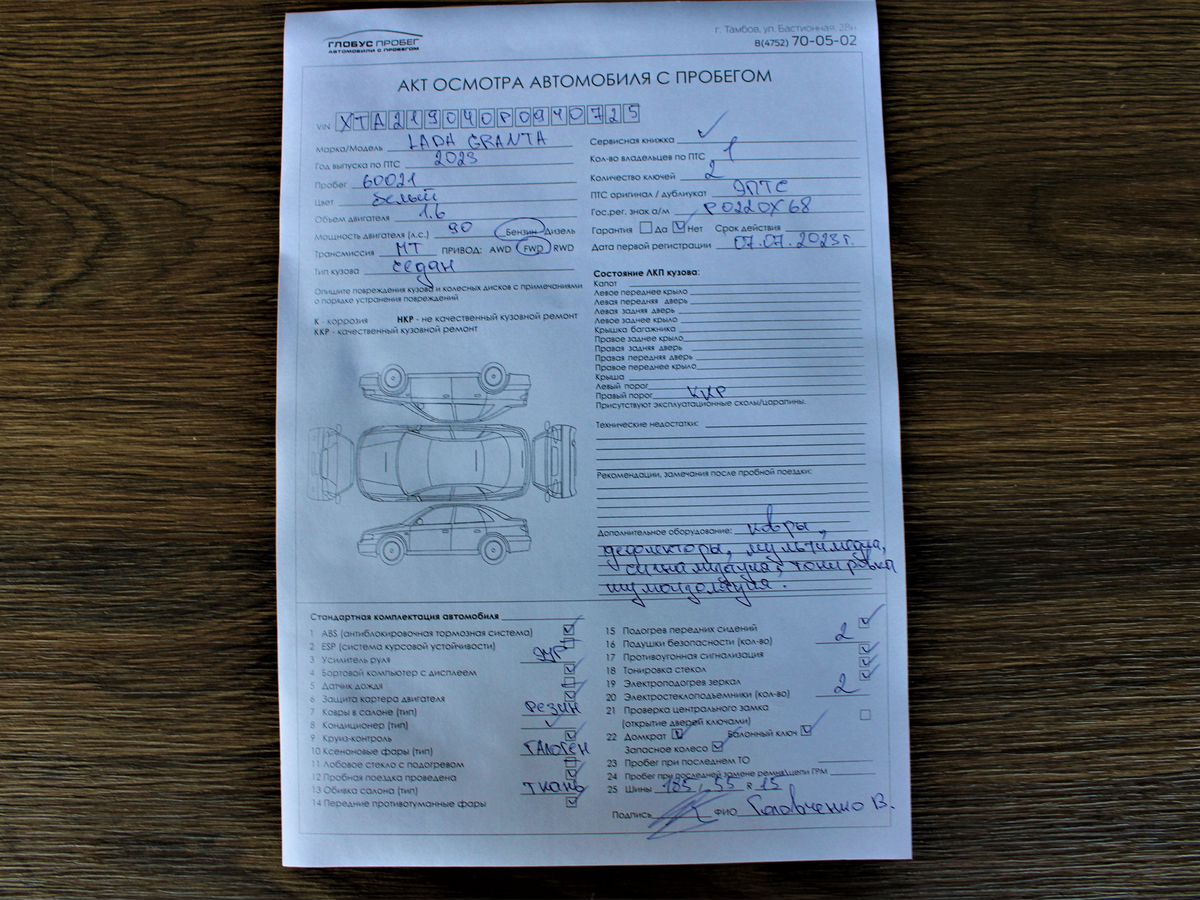 ГЛОБУС ПРОБЕГ
АВТОМОБИЛИ С ПРОБЕГОМ
г. Тамбов, ул. Бастионная, 28и
8(4752) 70-05-02
АКТ ОСМОТРА АВТОМОБИЛЯ С ПРОБЕГОМ
VIN XTA219040P0940725
Марка/Модель LADA GRANTA
Год выпуска по ПТС 2023
Пробег 60021
Цвет белый
Объем двигателя 1.6
Мощность двигателя (л.с.) 90 Бензин Дизель
Трансмиссия МТ ПРИВОД: AWD FWD RWD
Тип кузова седан
Опишите повреждения кузова и колесных дисков с примечаниями
о порядке устранения повреждений
К - коррозия НКР - не качественный кузовной ремонт
ККР - качественный кузовной ремонт
Сервисная книжка
Кол-во владельцев по ПТС 1
Количество ключей 2
ПТС оригинал / дубликат ЭПТС
Гос.рег. знак а/м Р022ОХ68
Гарантия Да Нет Срок действия
Дата первой регистрации 07.07.2023г.
Состояние ЛКП кузова:
Капот
Левое переднее крыло
Левая передняя дверь
Левая задняя дверь
Левое заднее крыло
Крышка багажника
Правое заднее крыло
Правая задняя дверь
Правая передняя дверь
Правое переднее крыло
Крыша
Левый порог
Правый порог ККР
Присутствуют эксплуатационные сколы/царапины.
Технические недостатки:
Рекомендации, замечания после пробной поездки:
Дополнительное оборудование: ковры,
дефлекторы, мультимедиа,
сигнализация, тонировка
шумоизоляция.
Стандартная комплектация автомобиля
1 ABS (антиблокировочная тормозная система)
2 ESP (система курсовой устойчивости)
3 Усилитель руля ЭУР
4 Бортовой компьютер с дисплеем
5 Датчик дождя
6 Защита картера двигателя
7 Ковры в салоне (тип) резин
8 Кондиционер (тип)
9 Круиз-контроль
10 Ксеноновые фары (тип) галоген
11 Лобовое стекло с подогревом
12 Пробная поездка проведена
13 Обивка салона (тип) ткань
14 Передние противотуманные фары
15 Подогрев передних сидений
16 Подушки безопасности (кол-во) 2
17 Противоугонная сигнализация
18 Тонировка стекол
19 Электроподогрев зеркал
20 Электростеклоподъемники (кол-во) 2
21 Проверка центрального замка
(открытие дверей ключами)
22 Домкрат Балонный ключ
Запасное колесо
23 Пробег при последнем ТО
24 Пробег при последней замене ремня/цепи ГРМ
25 Шины 185 / 55 R 15
Подпись ФИО Головченко В.